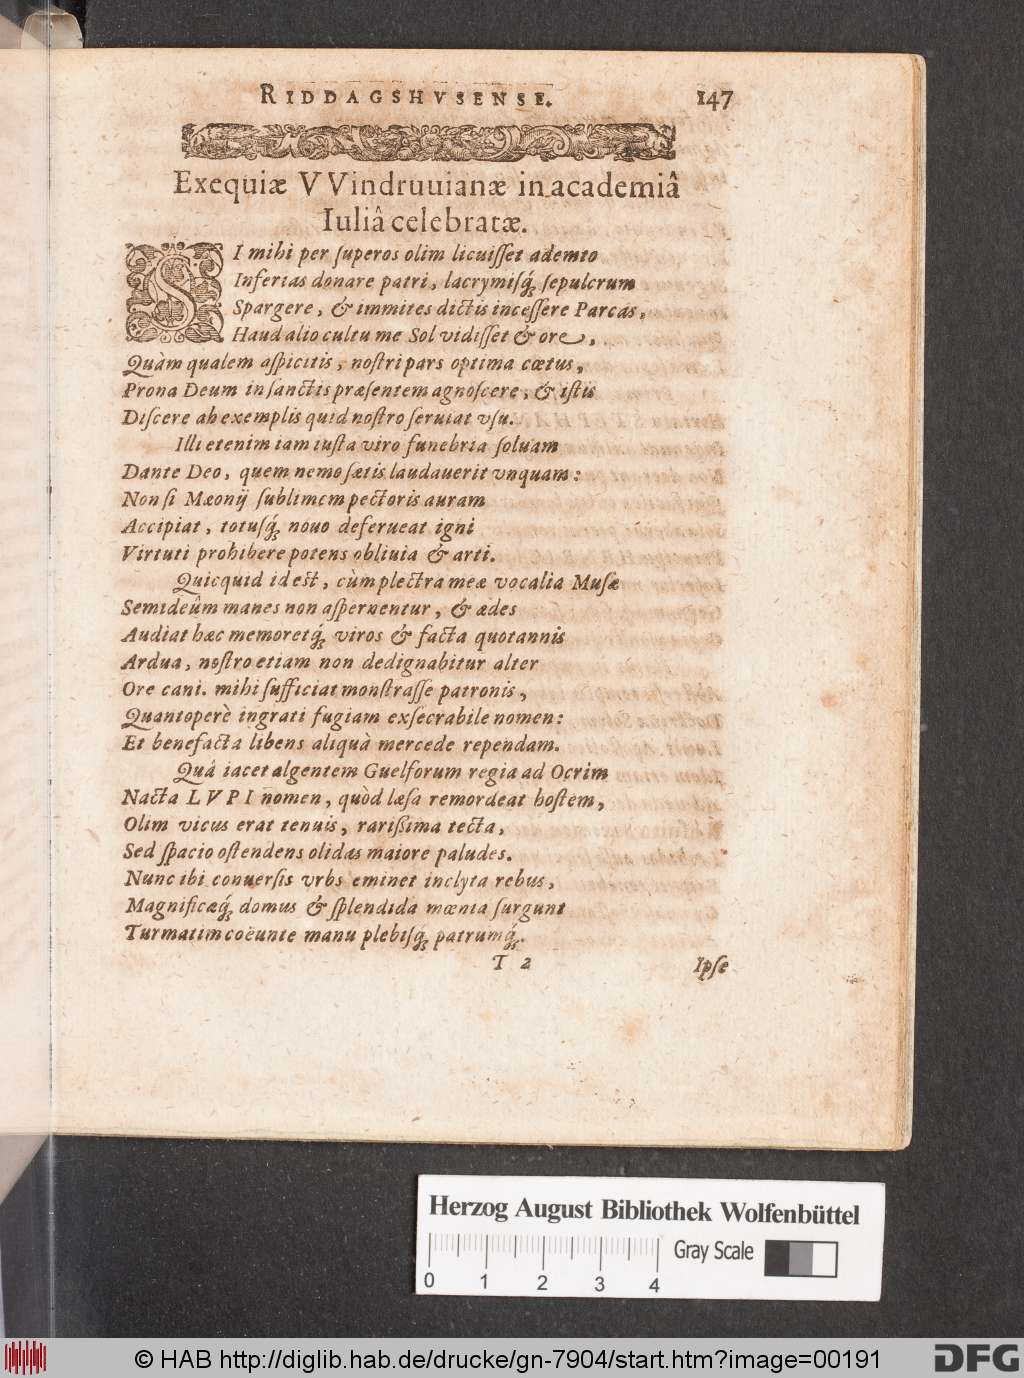 RIDDAGSHVSENSE. 147
Exequiæ VVindruuianæ in academiâ
Iuliâ celebratæ.
SI mihi per ſuperos olim licuiſſet ademto
Inferias donare patri, lacrymiſq́; ſepulcrum
Spargere, & immites dictis inceſſere Parcas,
Haud alio cultu me Sol vidiſſet & ore,
Quàm qualem aſpicitis, noſtri pars optima cœtus,
Prona Deum in ſanctis præſentem agnoſcere, & iſtis
Diſcere ab exemplis quid noſtro ſeruiat vſu.
Illi etenim iam iuſta viro funebria ſoluam
Dante Deo, quem nemo ſatis laudauerit vnquam:
Non ſi Mæonij ſublimem pectoris auram
Accipiat, totuſq́; nouo deferueat igni
Virtuti prohibere potens obliuia & arti.
Quicquid id eſt, cùm plectra meæ vocalia Muſæ
Semideûm manes non aſpernentur, & ædes
Audiat hæc memoretq́; viros & facta quotannis
Ardua, noſtro etiam non dedignabitur alter
Ore cani. mihi ſufficiat monſtraſſe patronis,
Quantoperè ingrati fugiam exſecrabile nomen:
Et benefacta libens aliquà mercede rependam.
Quâ iacet algentem Guelforum regia ad Ocrim
Nacta LVPI nomen, quòd læſa remordeat hoſtem,
Olim vicus erat tenuis, rarißima tecta,
Sed ſpacio oſtendens olidas maiore paludes.
Nunc ibi conuerſis vrbs eminet inclyta rebus,
Magnificæq́; domus & ſplendida mœnia ſurgunt
Turmatim coëunte manu plebiſq́; patrumq́;.
T 2 Ipſe
Herzog August Bibliothek Wolfenbüttel
Gray Scale
0 1 2 3 4
© HAB http://diglib.hab.de/drucke/gn-7904/start.htm?image=00191
DFG